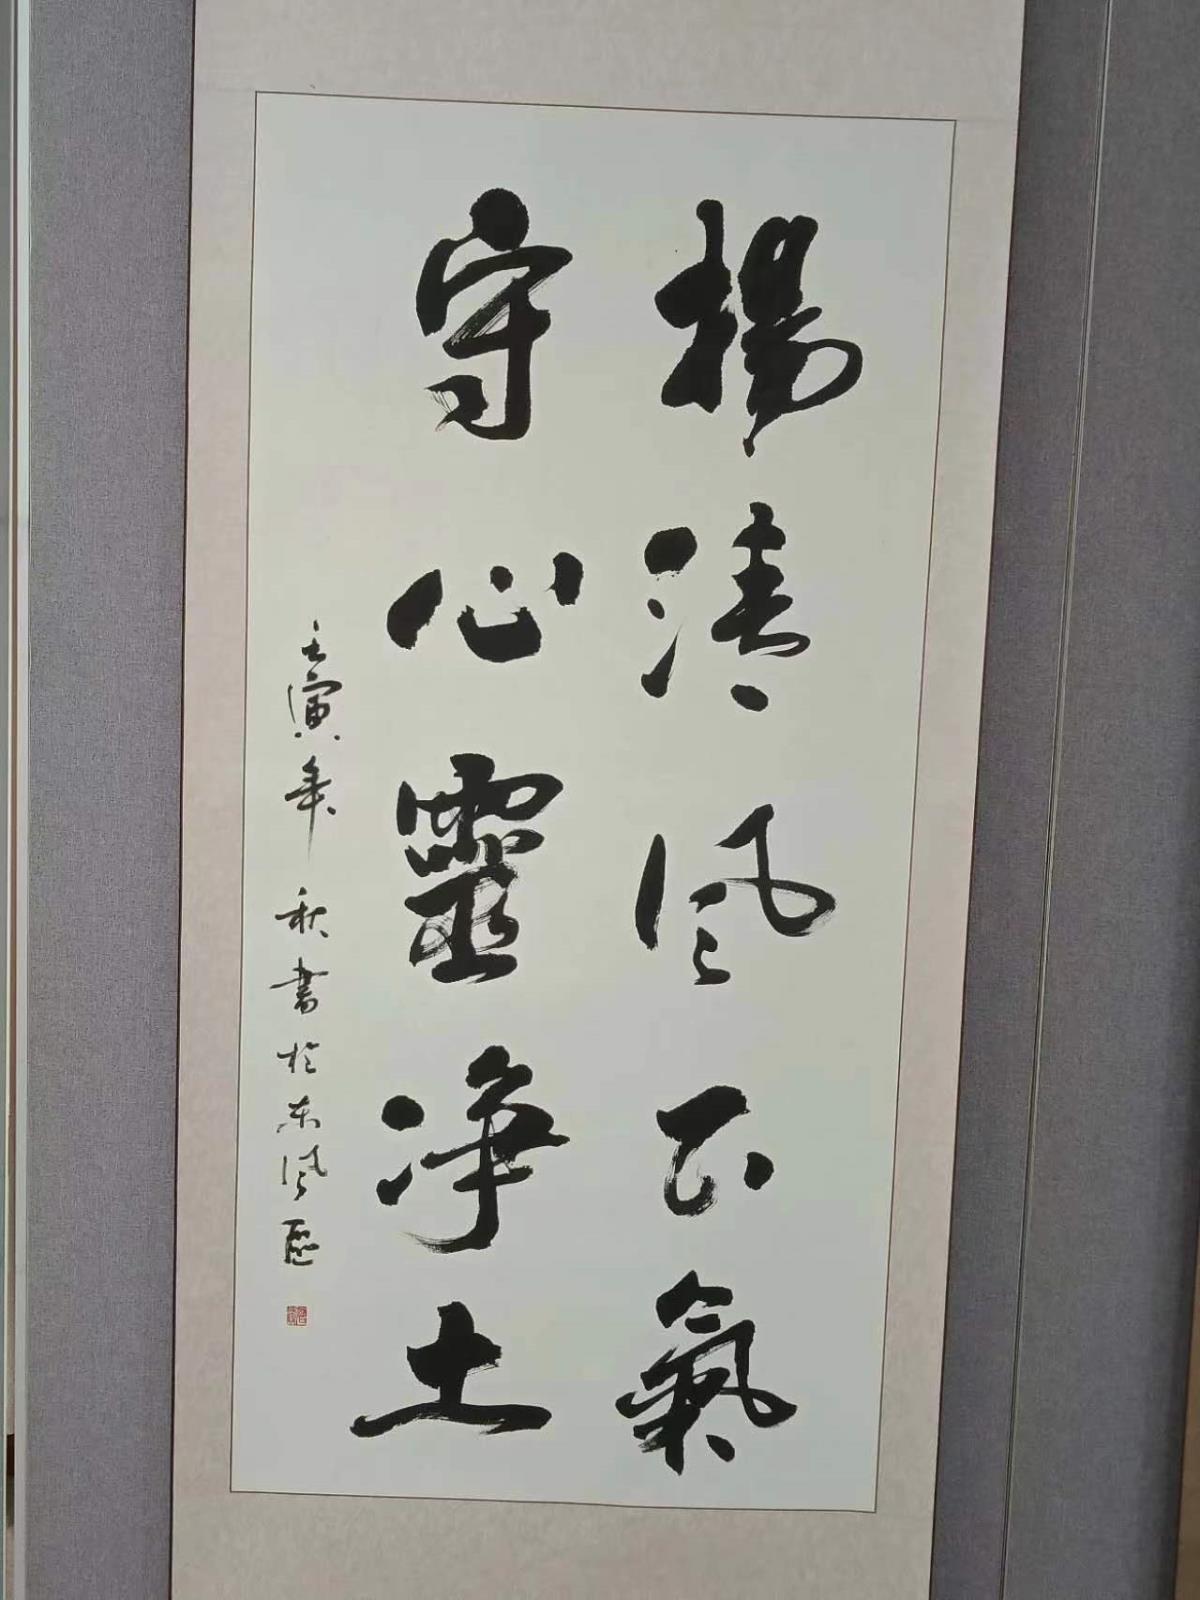 揚清风正氣
守心靈净土
壬寅年秋書於东风